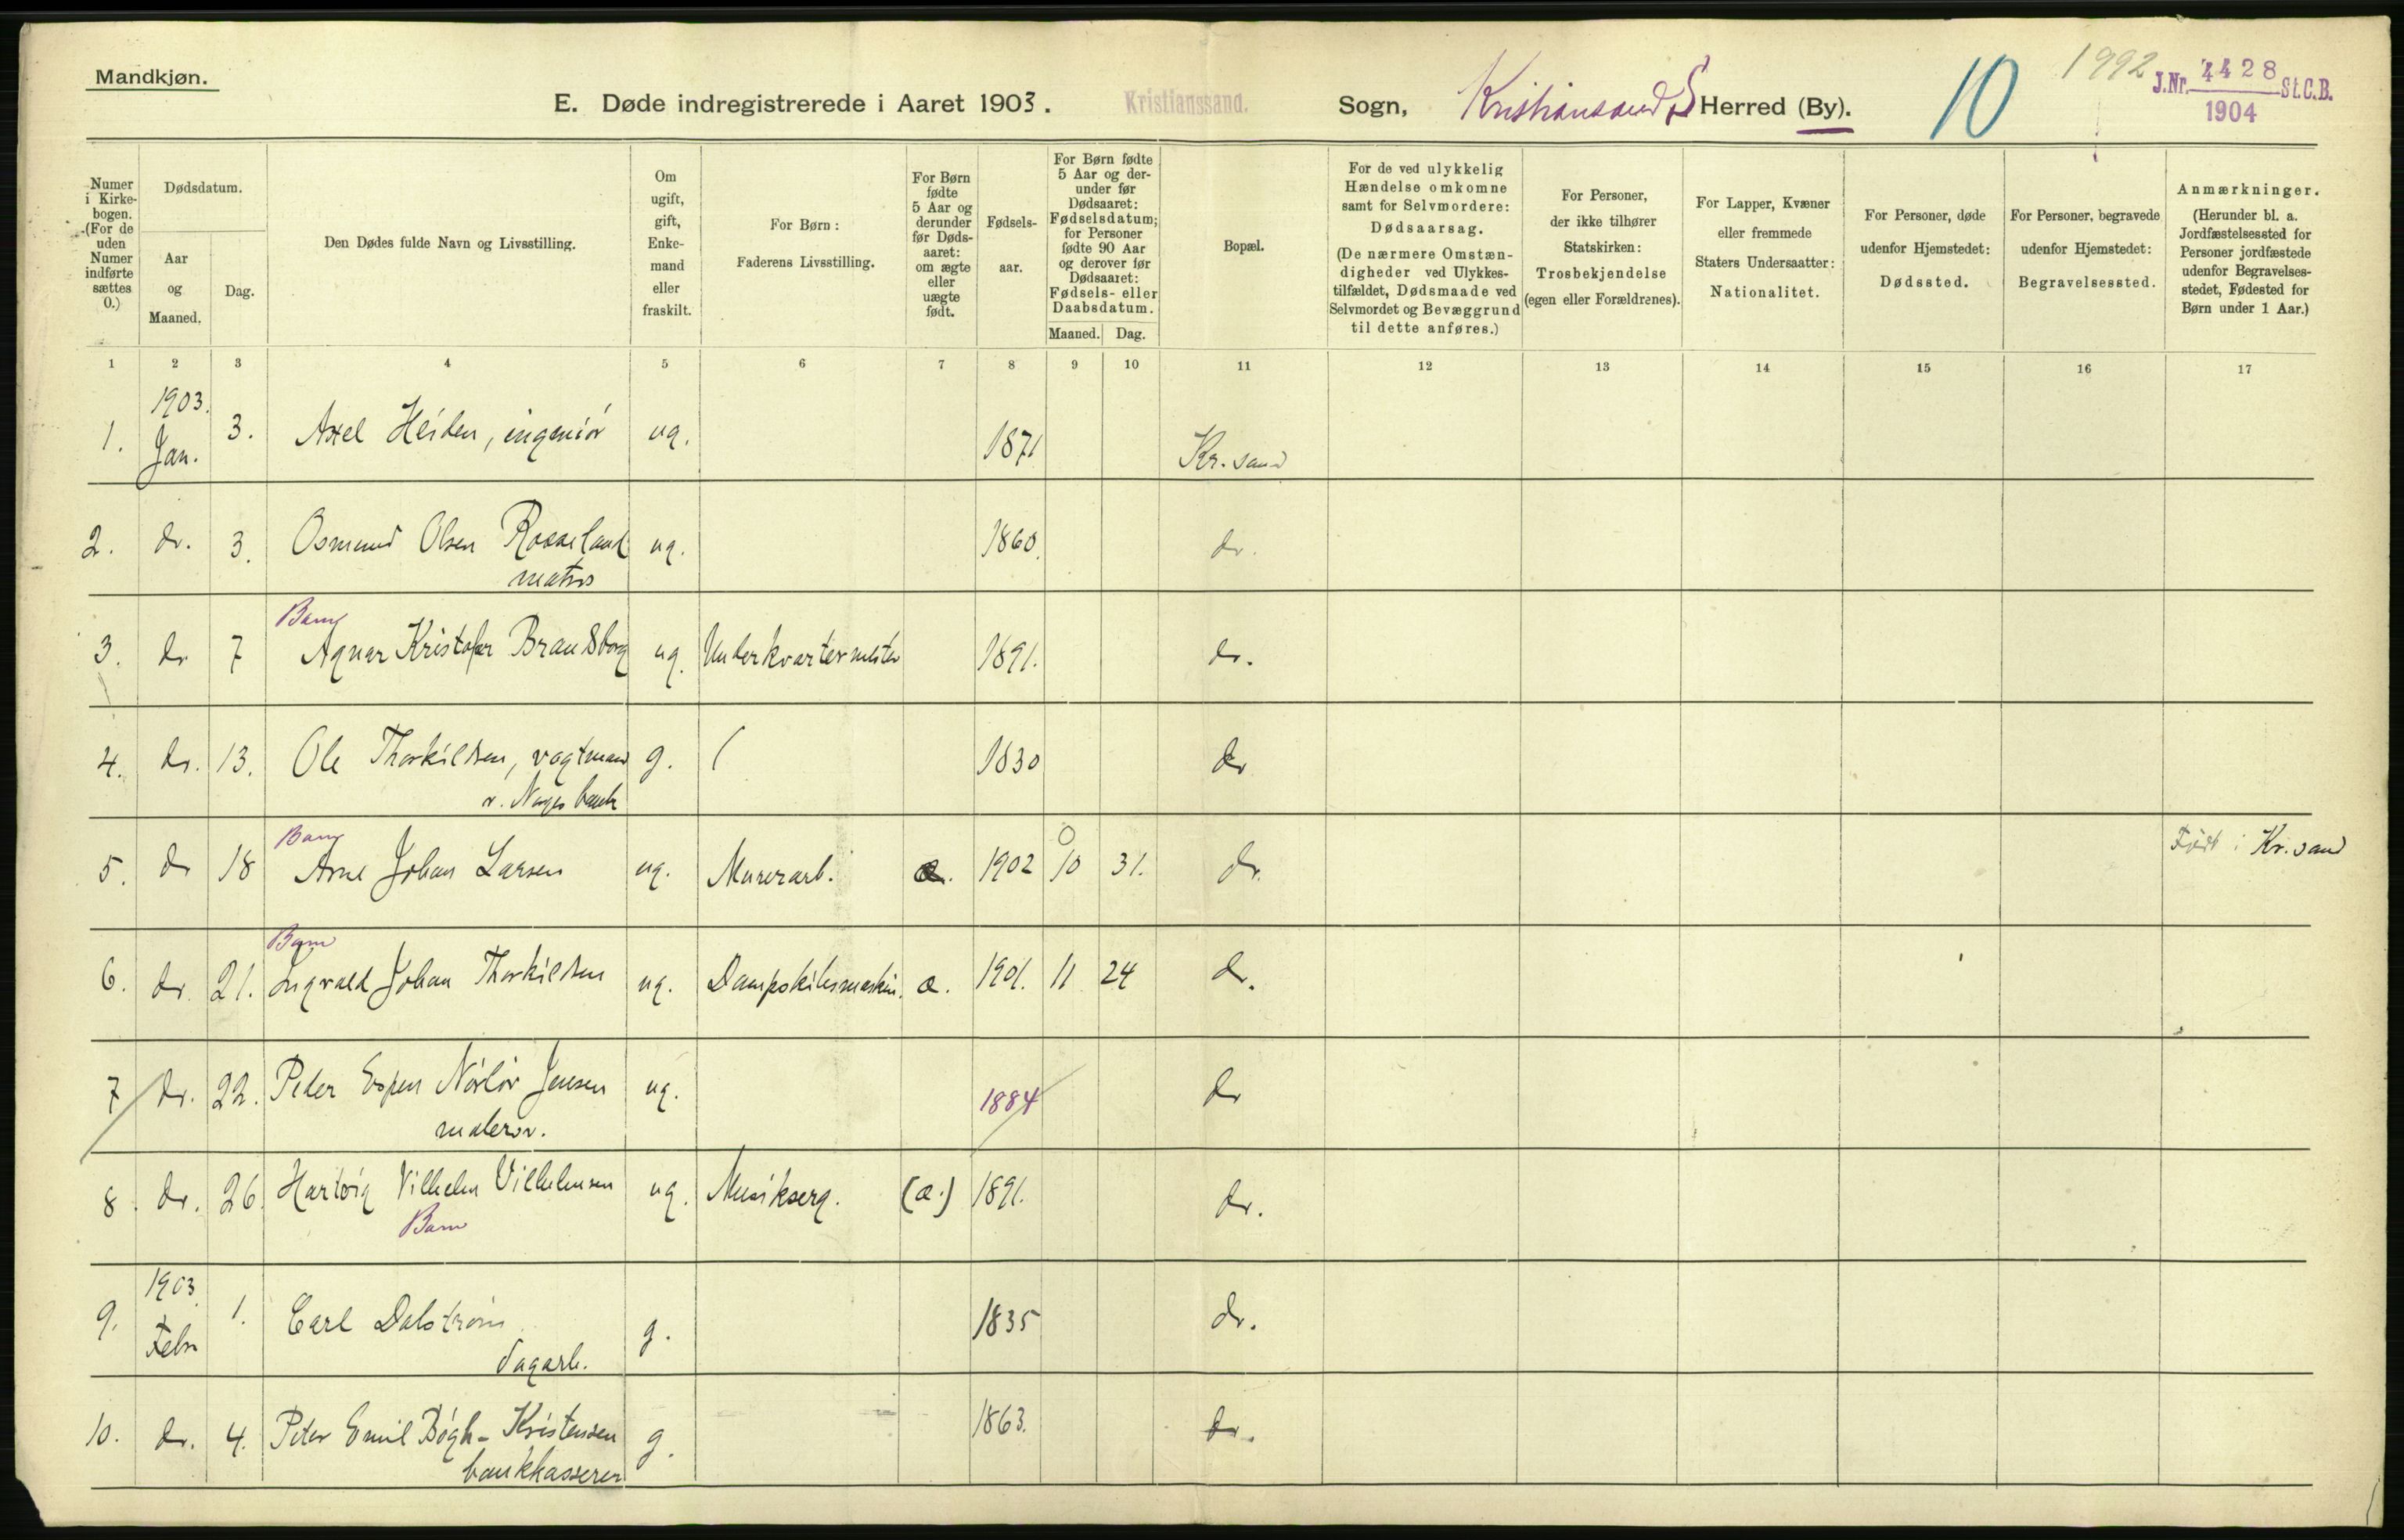 Mandkjøn.
E. Døde indregistrerede i Aaret 1903. Kristianssand. Sogn, Kristiansand S Herred (By). 10 1992 J.Nr. 4428 St.C.B.
1904
Numer i Kirkebogen. (For de uden Numer indførte sættes 0.)
Dødsdatum.
Aar og Maaned.
Dag.
Den Dødes fulde Navn og Livsstilling.
Om ugift, gift, Enkemand eller fraskilt.
For Børn: Faderens Livsstilling.
For Børn fødte 5 Aar og derunder før Dødsaaret: om ægte eller uægte født.
Fødselsaar.
For Børn fødte 5 Aar og derunder før Dødsaaret: Fødselsdatum; for Personer fødte 90 Aar og derover før Dødsaaret: Fødsels- eller Daabsdatum.
Maaned. Dag.
Bopæl.
For de ved ulykkelig Hændelse omkomne samt for Selvmordere: Dødsaarsag. (De nærmere Omstændigheder ved Ulykkestilfældet, Dødsmaade ved Selvmordet og Bevæggrund til dette anføres.)
For Personer, der ikke tilhører Statskirken: Trosbekjendelse (egen eller Forældrenes).
For Lapper, Kvæner eller fremmede Staters Undersaatter: Nationalitet.
For Personer, døde udenfor Hjemstedet: Dødssted.
For Personer, begravede udenfor Hjemstedet: Begravelsessted.
Anmærkninger. (Herunder bl. a. Jordfæstelsessted for Personer jordfæstede udenfor Begravelsesstedet, Fødested for Børn under 1 Aar.)
1 2 3 4 5 6 7 8 9 10 11 12 13 14 15 16 17
1. 1903. Jan. 3. Axel Heiden, ingeniör ug. 1871 Kr.sand
2. do. 3. Osmund Olsen Rosseland ug. 1860. do.
matros
Barn
3. do 7 Agnar Kristofer Brandsborg ug. Underkvartermester 1891. do.
4. do. 13. Ole Thorkildsen, vagtmand g. 1830 do
v. Norges bank
Barn
5. do 18 Arne Johan Larsen ug. Murerarb. æ. 1902 10 31. do. Født i Kr.sand
Barn
6. do. 21. Ingvald Johan Thorkildsen ug. Dampskibsmaskin. æ. 1901. 11 24 do.
7 do. 22. Peter Espen Nörlör Jensen ug. 1884 do
malersv.
8. do. 26. Hartvig Vilhelm Vilhelmsen ug. Musikserg. (æ.) 1891. do.
Barn
9. 1903. Febr 1. Carl Dalström g. 1835 do.
dagarb.
10. do. 4. Peter Emil Bögh-Kristensen g. 1863. do.
bankkasserer